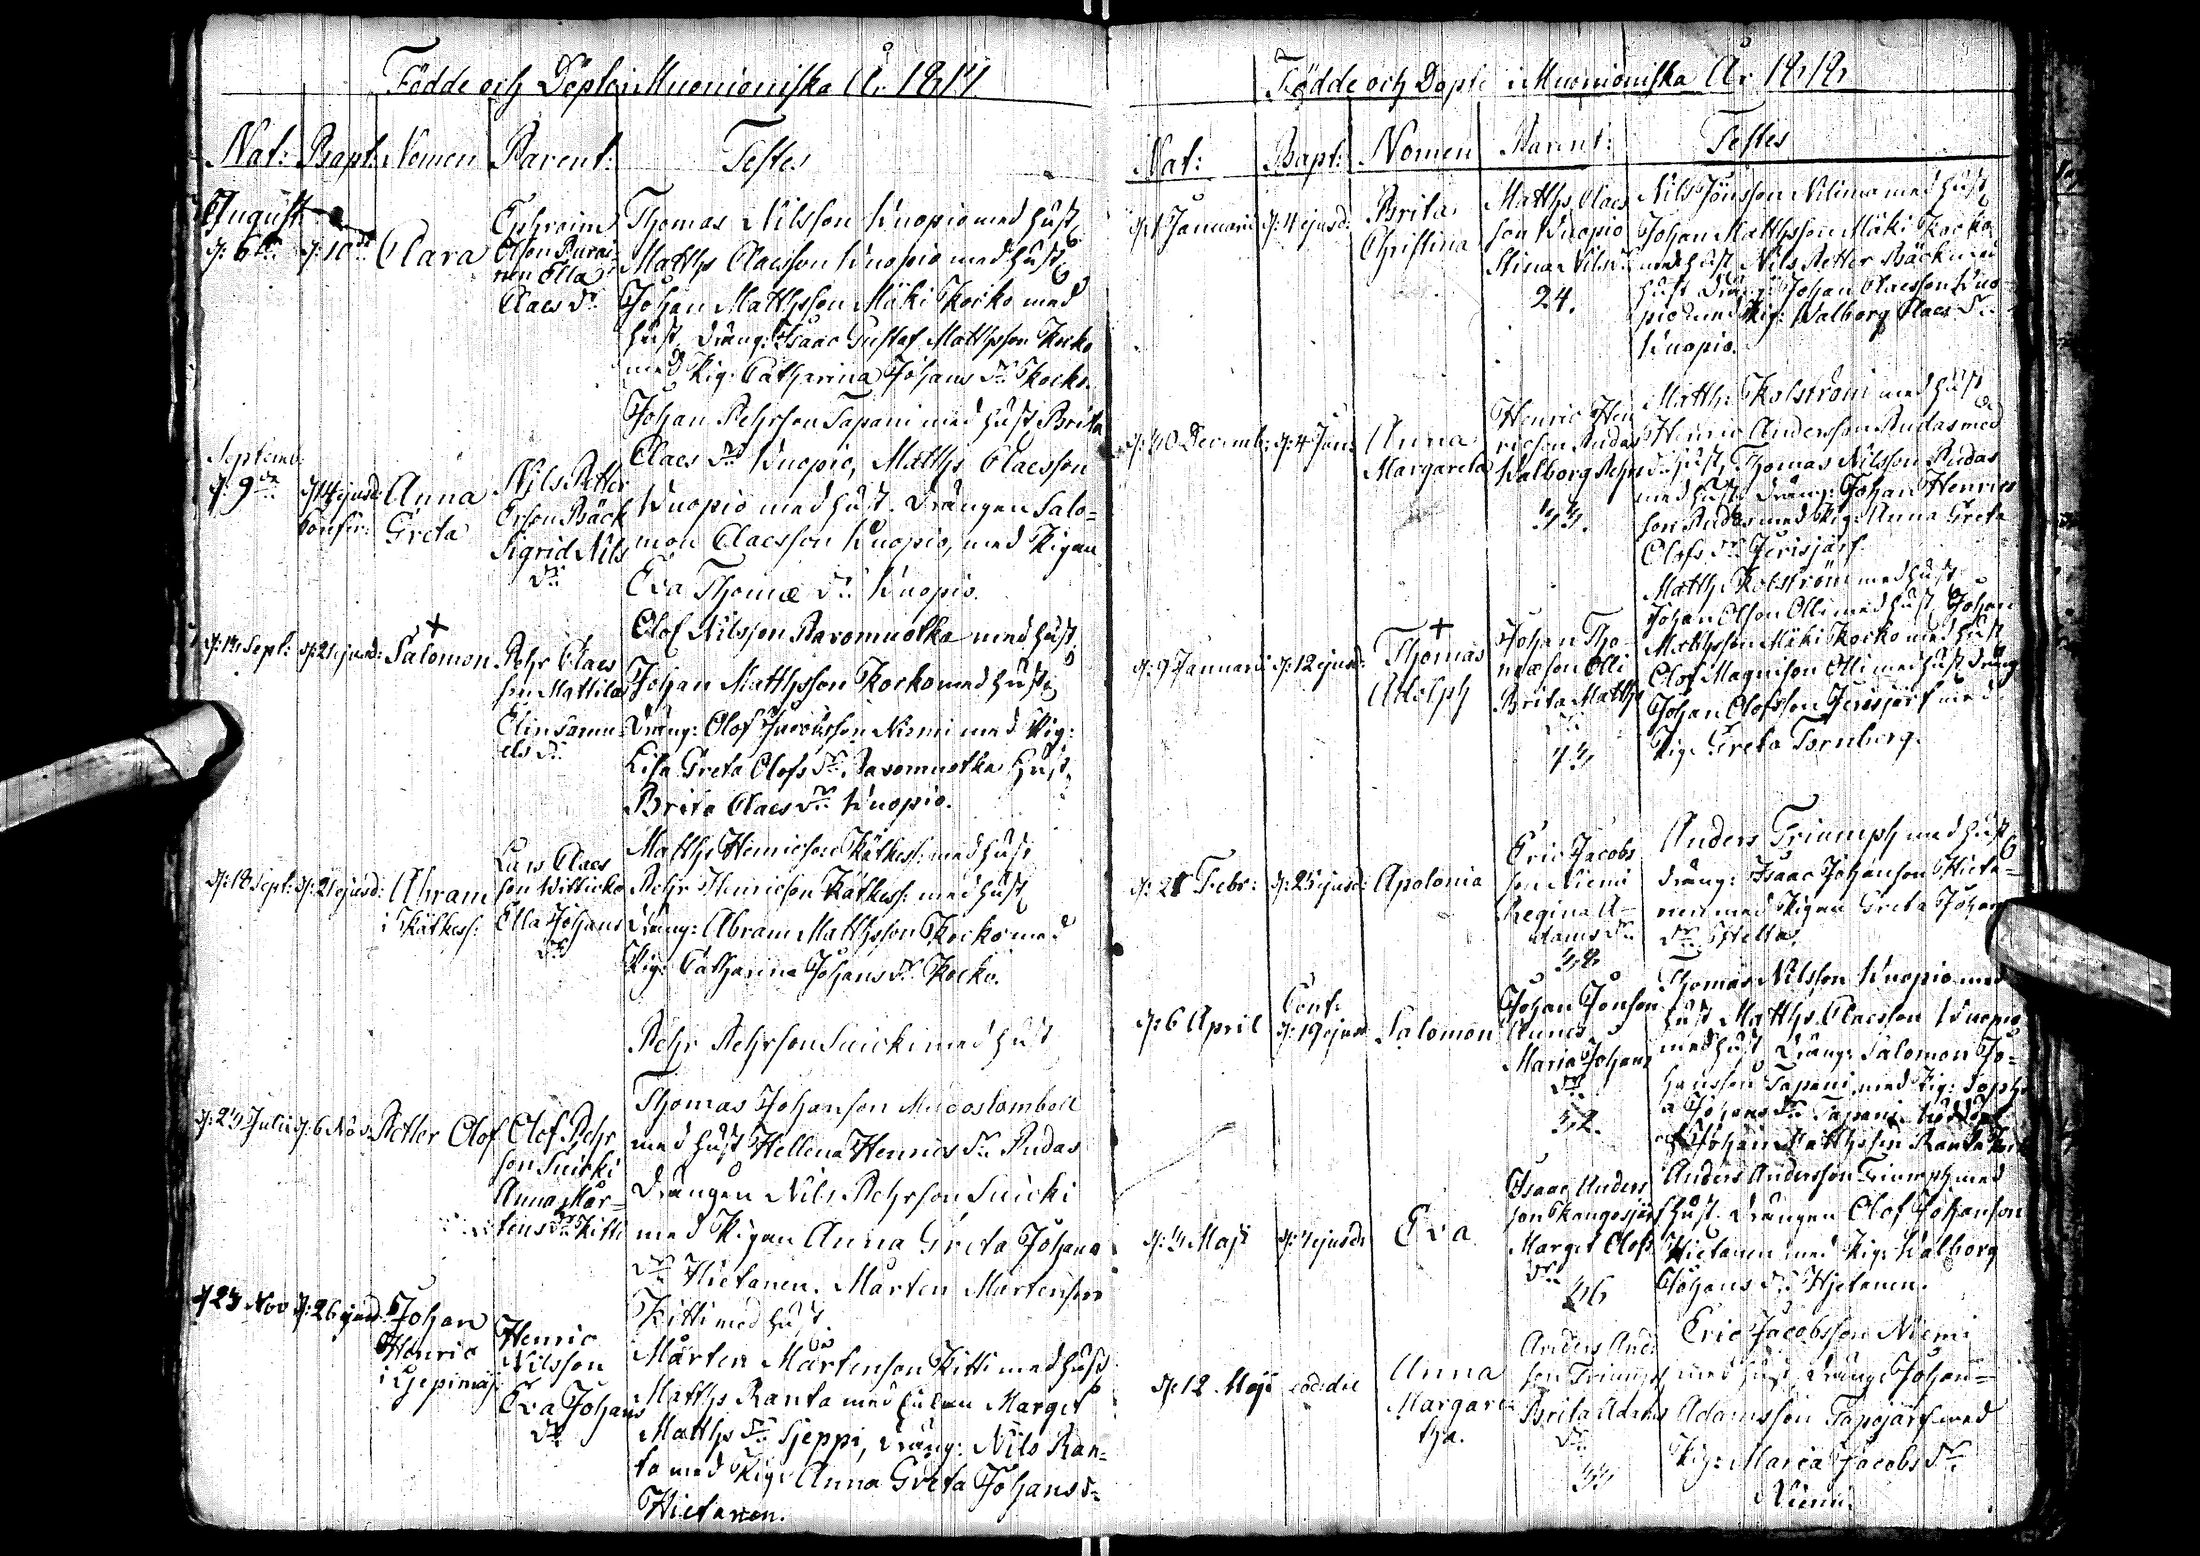 Födde och Döpte i Muonioniska År 1817
Nat: Bapt: Nomen Parent: Testes
August
d: 6te d: 10de Clara
Ephraim
Olson Pura-
nen Ella
Claes dr
Thomas Nilsson Kuopio med hust
Matths Claesson Kuopio med hust
Johan Matthsson Mäki Kocko med
hust, dräng: Isaac Gustaf Mattsson Kocko
med Pig: Catharina Johans dr Kocko.
Septemb:
d: 9de d: 14 ejusd: Anna
Confir: Greta
Nils Petter
Erson Bäck
Sigrid Nils
dr
Johan Pehrson Tapani med hust Brita
Claes dr Kuopio, Matths Claesson
Kuopio med hust. Drängen Salo-
mon Claesson Kuopio, med Pigan
Eva Thomæ dr Kuopio.
d: 13 Sept: d: 21 ejusd: Salomon
Pehr Claes
son Mattila
Elin Samu-
els dr
Olof Nilsson Ravomuotka med hust
Johan Matthsson Kocko med hust
dräng: Olof Jacobsson Niemi med Pig:
Lisa Greta Olofs dr Ravomuotka hust
Brita Claes dr Kuopio.
d: 18 Sept: d: 21 ejusd: Abram
i Kätkes:
Lars Claes
son Willicko
Ella Johans
dr
Matths Henricson Kätkes: med hust
Pehr Henricson Kätkes: med hust
dräng: Abram Matthsson Kocko med
Pig: Catharina Johans dr Kocko.
d: 23 Julii d: 6 Nov. Petter Olof
Olof Pehr
son Suicki
Anna Mår-
tens dr Kitti
Pehr Pehrson Suicki med hust
Thomas Johanson Muodoslombol
med hust Hellena Henrics dr Rudas
Drängen Nils Pehrson Suicki
med Pigan Anna Greta Johans
dr Hietanen. Mårten Mårtenson
Kitti med hust.
d 23 Nov d: 26 ejusd. Johan
Henric
i Kjepimaj:
Henric
Nilsson
Eva Johans
dr
Mårten Mårtenson Kitti med hust
Matths Ranta med Enkan Marget
Matths dr Sjeppi, dräng: Nils Ran-
ta med Pig: Anna Greta Johans d-
Hietanen.
Födde och Döpte i Muonioniska År 1818
Nat: Bapt: Nomen Parent: Testes
d: 1 Januarii d: 4 ejusd: Brita
Christina
Matths Claes
son Kuopio
Stina Nils dr
24.
Nils Jönsson Nilima med hust
Johan Matthsson Mäki Kocko
med hust Nils Petter Bäck med
hust dräng: Johan Claesson Kuo-
pio med Pig: Walborg Claes dr
Kuopio.
d: 30 Decemb: d: 4 Jan: Anna
Margareta
Henric Hen
ricson Rudas
Walborg Pehrs dr
33.
Matth: Kolström med hust
Henric Andersson Rudas med
hust, Thomas Nilsson Rudas
med hust dräng: Johan Henric
son Rudas med Pig: Anna Greta
Olofs dr Jerisjärf.
d: 9 Januarii d: 12 ejusd: Thomas
Adolph
Johan Tho
mæson Olli
Brita Matths
dr
43
Matth Kolström med hust
Johan Olson Olli med hust Johan
Matthsson Mäki Kocko med hust
Olof Magnison Olli med hust dräng
Johan Olofsson Jerisjärf med
Pig: Greta Tornberg.
d: 21 Febr: d: 25 ejusd: Apolonia
Eric Jacobs
son Niemi
Regina A-
dams dr
38
Anders Triumph med hust
dräng: Isaac Johanson Hieta-
nen med Pigan Greta Johans
dr
d: 6 April Conf:
d: 19 ejusd Salomon
Johan Jönson
Maria Johans
dr
32.
Thomas Nilsson Kuopio med
hust Matths Claesson Kuopio
med hust dräng: Salomon Jo-
hansson Tapani med Pig: Sophi
a Johans dr Tapani
af Johan Matthsson Ranta
d: 3 Maji d: 7 ejusd: Eva
Isaac Anders
son Kangosjärf
Marget Olofs
dr
36
Anders Andersson Triumph med
hust. drängen Olof Johanson
Hietanen med Pig: Walborg
Johans dr Hjetanen.
d: 12 Maji eodem die Anna
Margare
tha.
Anders And:
son Triumph
Brita Adams
dr
33
Eric Jacobsson Niemi
med hust, dräng: Johan
Adamsson Tapojärf med
Pig: Maria Jacobs dr
Niemi.